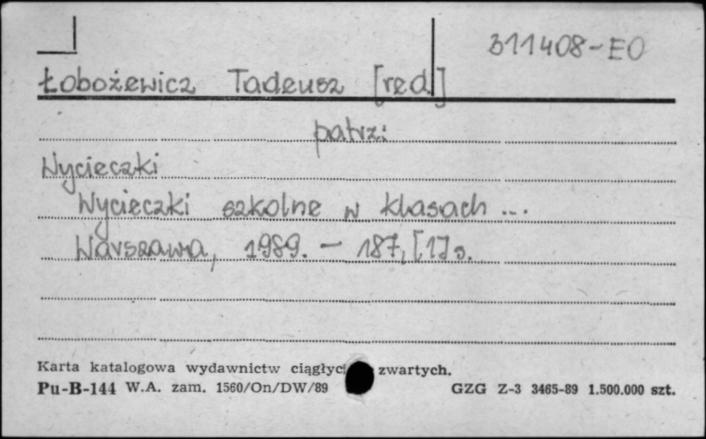 311408-EO
Łobożewicz Tadeusz [red.]
patrz:
Wycieczki
Wycieczki szkolne w klasach ...
Warszawa, 1989. - 187, [1] s.
Karta katalogowa wydawnictw ciągłyc zwartych.
Pu-B-144 W.A. zam. 1560/On/DW/89 GZG Z-3 3465-89 1.500.000 szt.